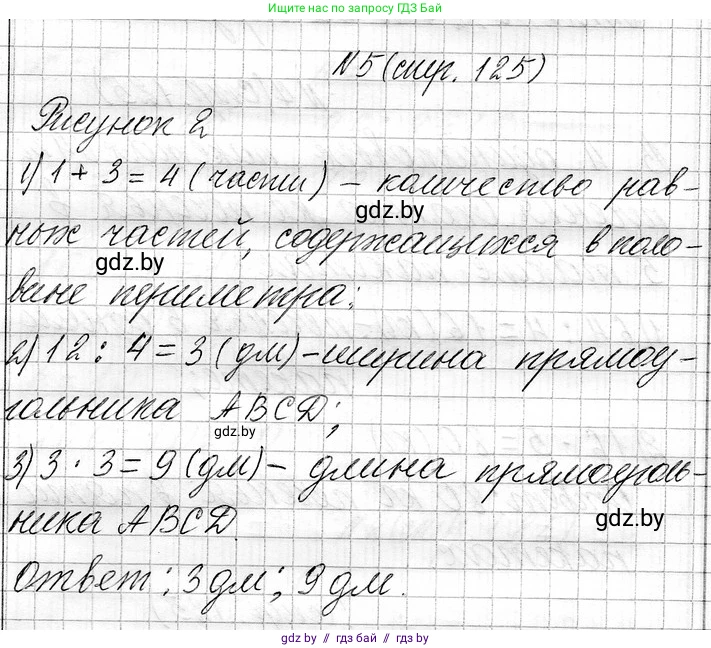 Ищите нас по запросу ГДЗ.БАЙ
N5(стр. 125)
Рисунок 2
1) 1 + 3 = 4 ( части ) – количество рав-
gdz.by
ных частей, содержащихся в поло-
gdz.by
вине периметра;
2) 12 : 4 = 3 (дм) – ширина прямоу-
гольника ABCD;
gdz.by
3) 3 · 3 = 9 (дм) – длина прямоуголь-
ника ABCD.
gdz.by
Ответ: 3 дм; 9 дм.
gdz.by // гдз бай // гдз.by